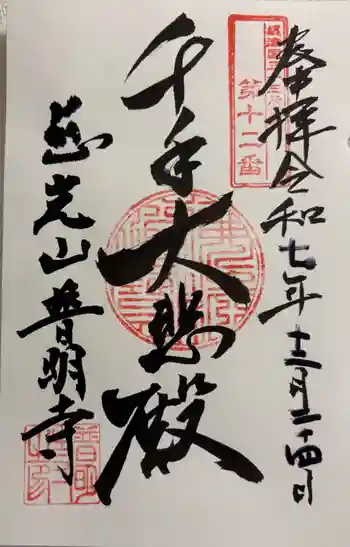 奉拝 令和七年十二月二十四日
第十二番
千手大悲殿
慈光山普明寺
普明